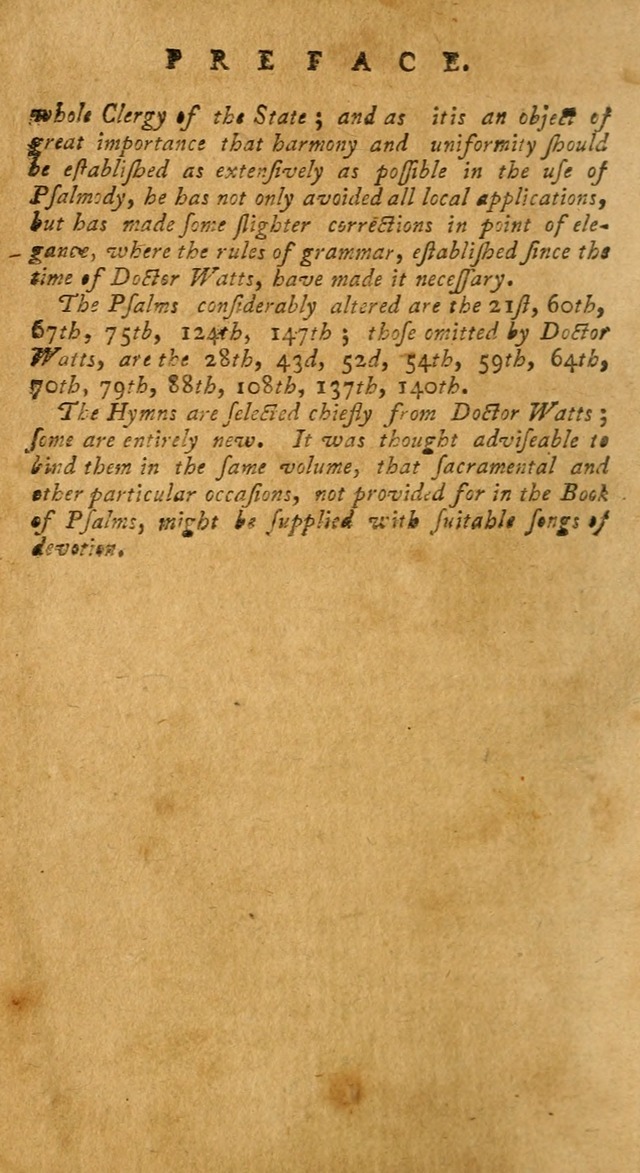 PREFACE.
whole Clergy of the State ; and as itis an object of
great importance that harmony and uniformity ſhould
be eſtabliſhed as extenſively as poſſible in the uſe of
Pſalmody, he has not only avoided all local applications,
but has made ſome ſlighter corrections in point of ele-
gance, where the rules of grammar, eſtabliſhed ſince the
time of Doctor Watts, have made it neceſſary.
The Pſalms conſiderably altered are the 21ſt, 60th,
67th, 75th, 124th, 147th ; thoſe omitted by Doctor
Watts, are the 28th, 43d, 52d, 54th, 59th, 64th,
70th, 79th, 88th, 108th, 137th, 140th.
The Hymns are ſelected chiefly from Doctor Watts ;
ſome are entirely new. It was thought adviſeable to
bind them in the ſame volume, that ſacramental and
other particular occaſions, not provided for in the Book
of Pſalms, might be ſupplied with ſuitable ſongs of
devotion.